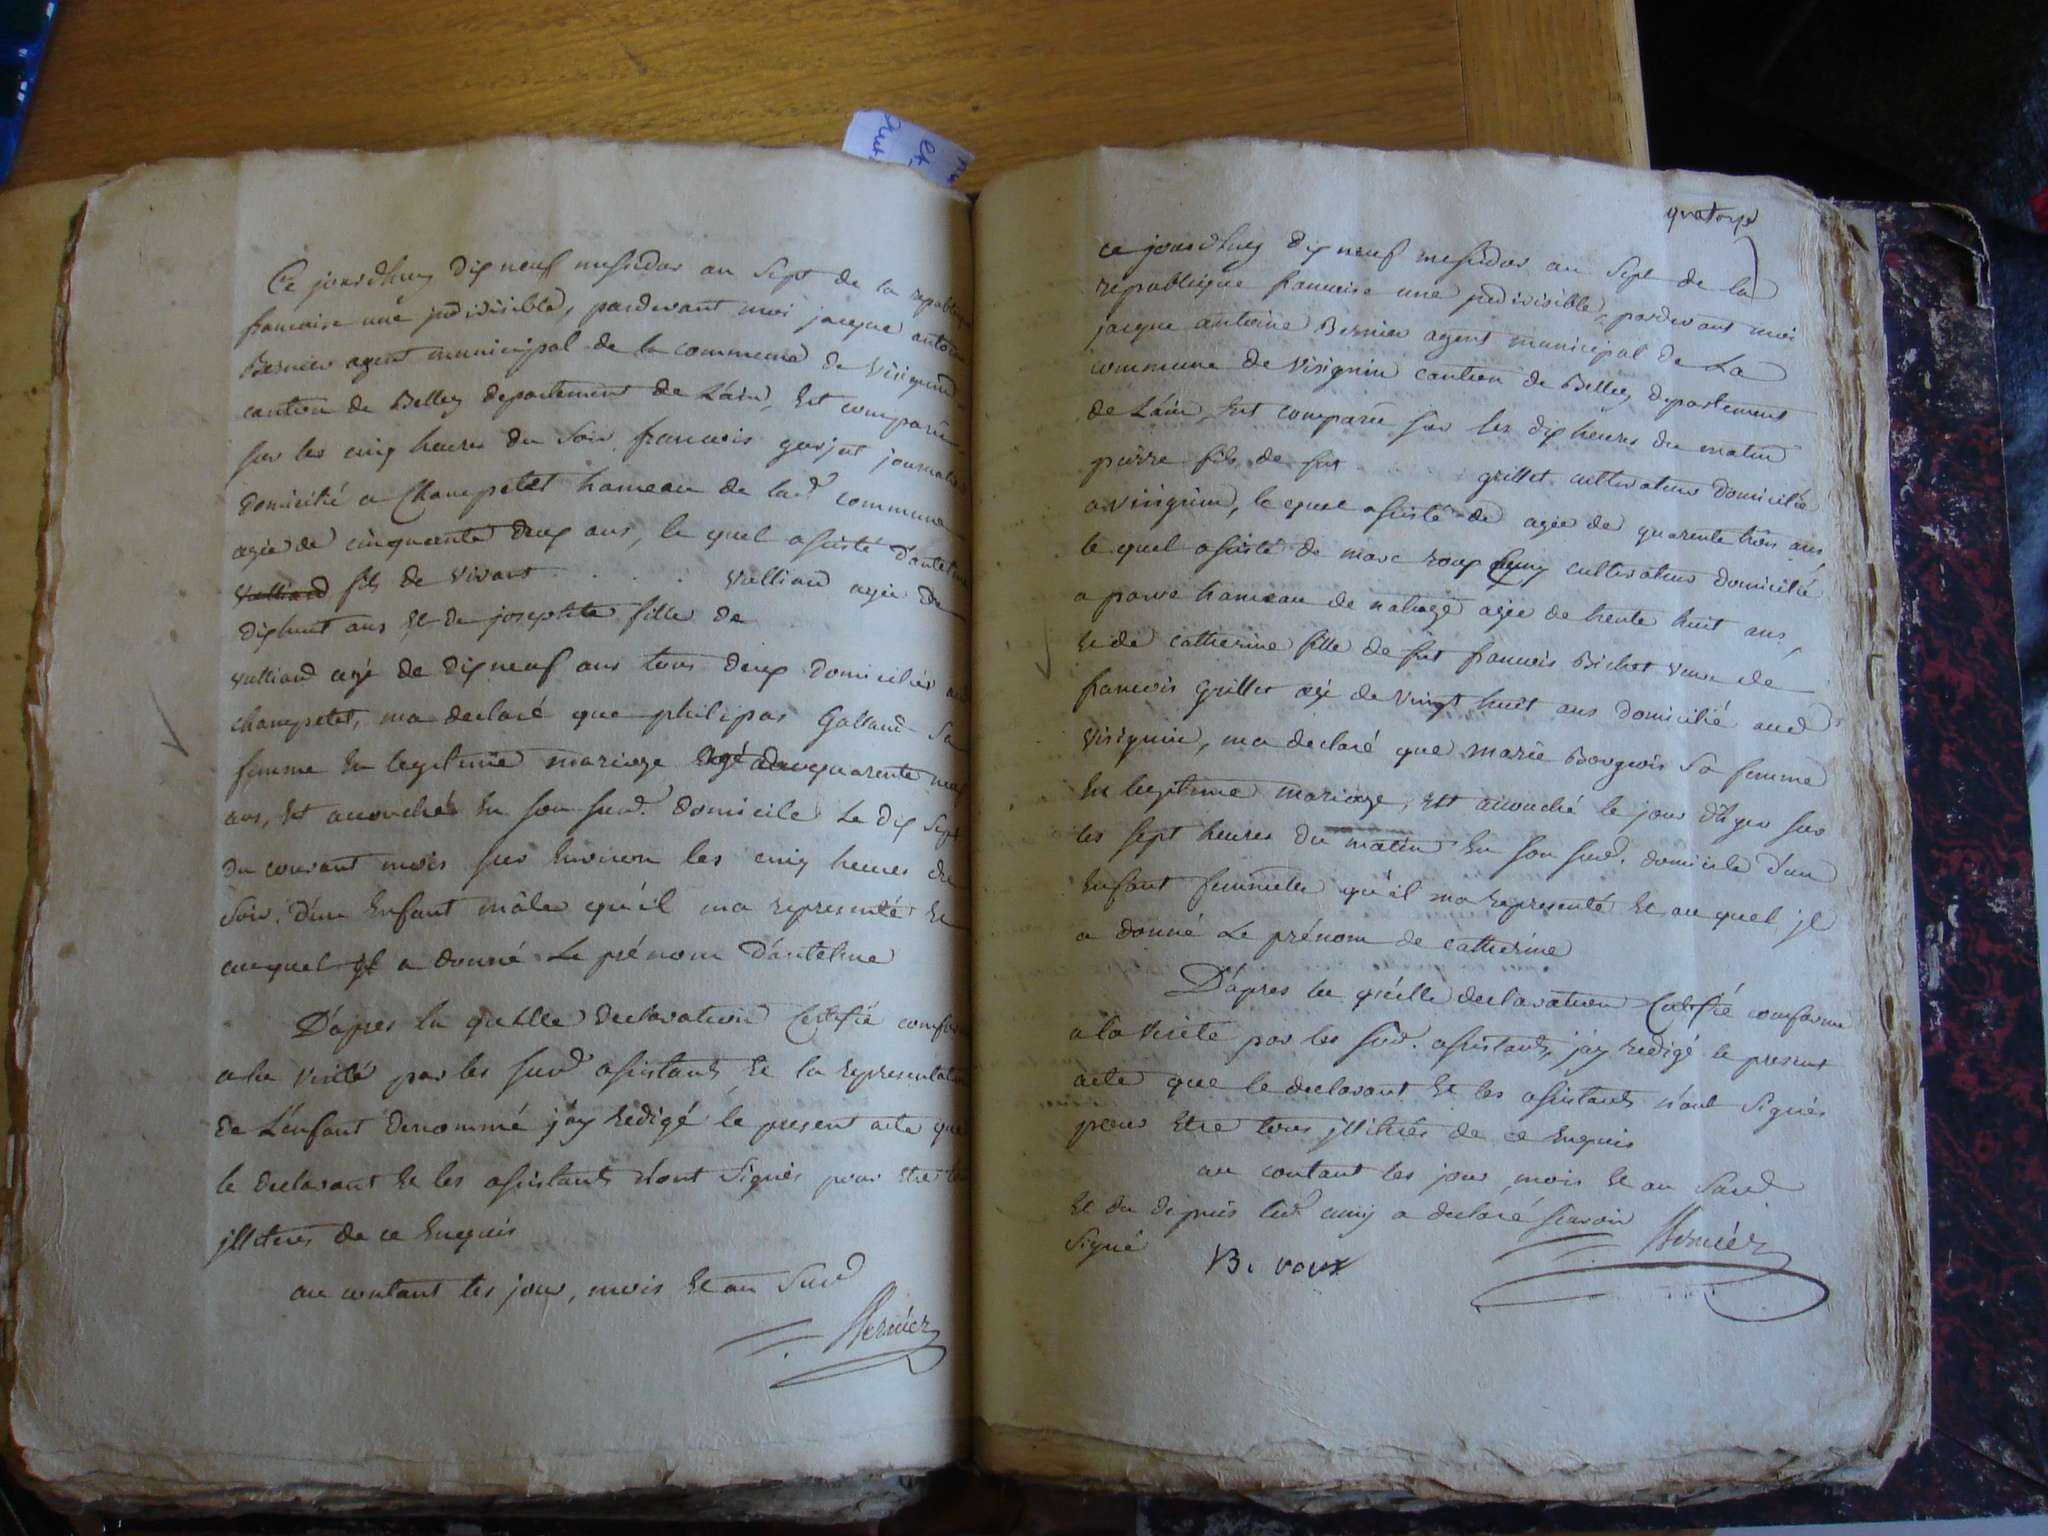 Ce jourdhuy dix neuf mesidor an Sept de la republique
francoise une jndivisible, pardevant moi jacque antoine
Bernier agent municipal de la commune de Virignin
canton de Belley departement de L'ain, Est comparu
sur les cinq heures du Soir francois gorjut journalier
domicilié a Champetet hameau de lad. commune
agée de cinquante deux ans, le quel asisté d'antelme
Valliand fils de Vivant . . . . Valliand agée de
dixhuit ans Et de josephte fille de
Valliand agé de dix neuf ans tous deux domiciliés aud
champetet, ma declaré que philipas Galland Sa
femme En legitime mariage agé de quarente neuf
ans, Est accouché En son sud. domicile Le dix Sept
du courant mois sur Environ les cinq heures du
Soir. d'un Enfant mâle qu'il ma representé Et
auquel jl a donné Le prénom D'antelme
D'apres la quelle declaration Certifié conforme
a la verité par les sud. asistants Et la representation
de L'enfant denommé j'ay redigé le present acte que
le declarant Et les asistants n'ont Signés pour Etre tous
jlliteres de ce Enquis
au contant les jour, mois Et an Sud
Bernier
quatorze
ce jourdhuy dix neuf mesidor an Sept de la
republique francoise une jndivisible, pardevant moi
jacque antoine Bernier agent municipal de La
commune de Virignin canton de Belley departement
de L'ain, Est comparu sur les dix heures du matin
pierre fils de fut grillet cultivateur domicilié
a virignin, le quel asisté de agée de quarente trois ans
le quel asisté de marc roux cultivateur domicilié
a hameau de agée de trente huit ans,
Et de catherine fille de fut francois Bichot veuve de
francois Grillet agé de vingt huit ans domicilié aud
Virignin, ma declaré que marie Bourgeois Sa femme
En legitime mariage, Est accouché le jour d'hyer sur
les sept heures du matin En son sud. domicile d'un
Enfant femmelle qu'il ma representé Et au quel jl
a donné Le prénom de catherine
D'apres la quelle declaration Certifié conforme
a la verité par les sud. asistants, j'ay redigé le present
acte que le declarant Et les asistants n'ont Signés
pour Etre tous jlliterés de ce Enquis
au contant les jour, mois Et an Sud
Et du depuis led. a declaré scavoir
Signé
Bernier
B. roux